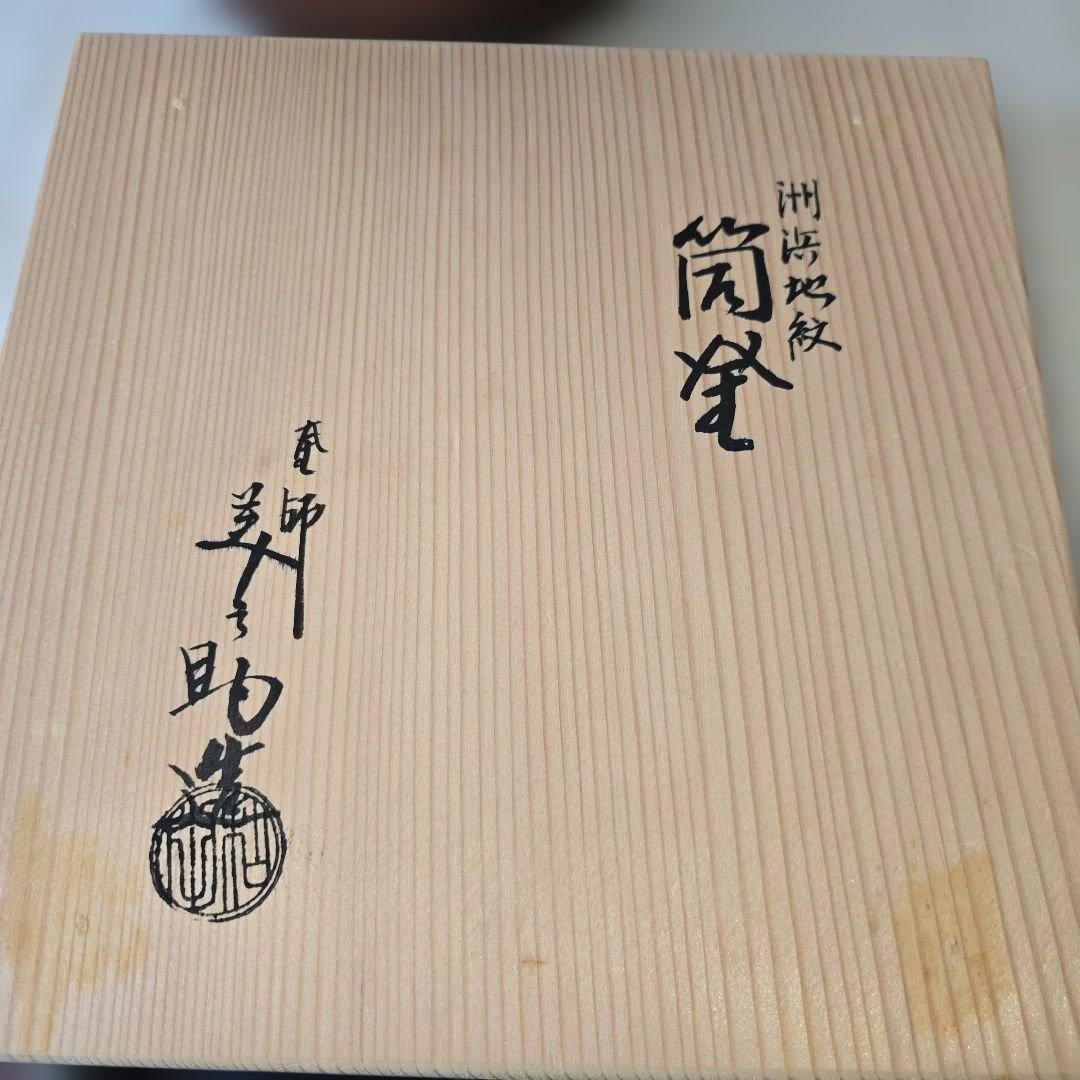 洲浜地紋
筒釜
釜師
美之助造